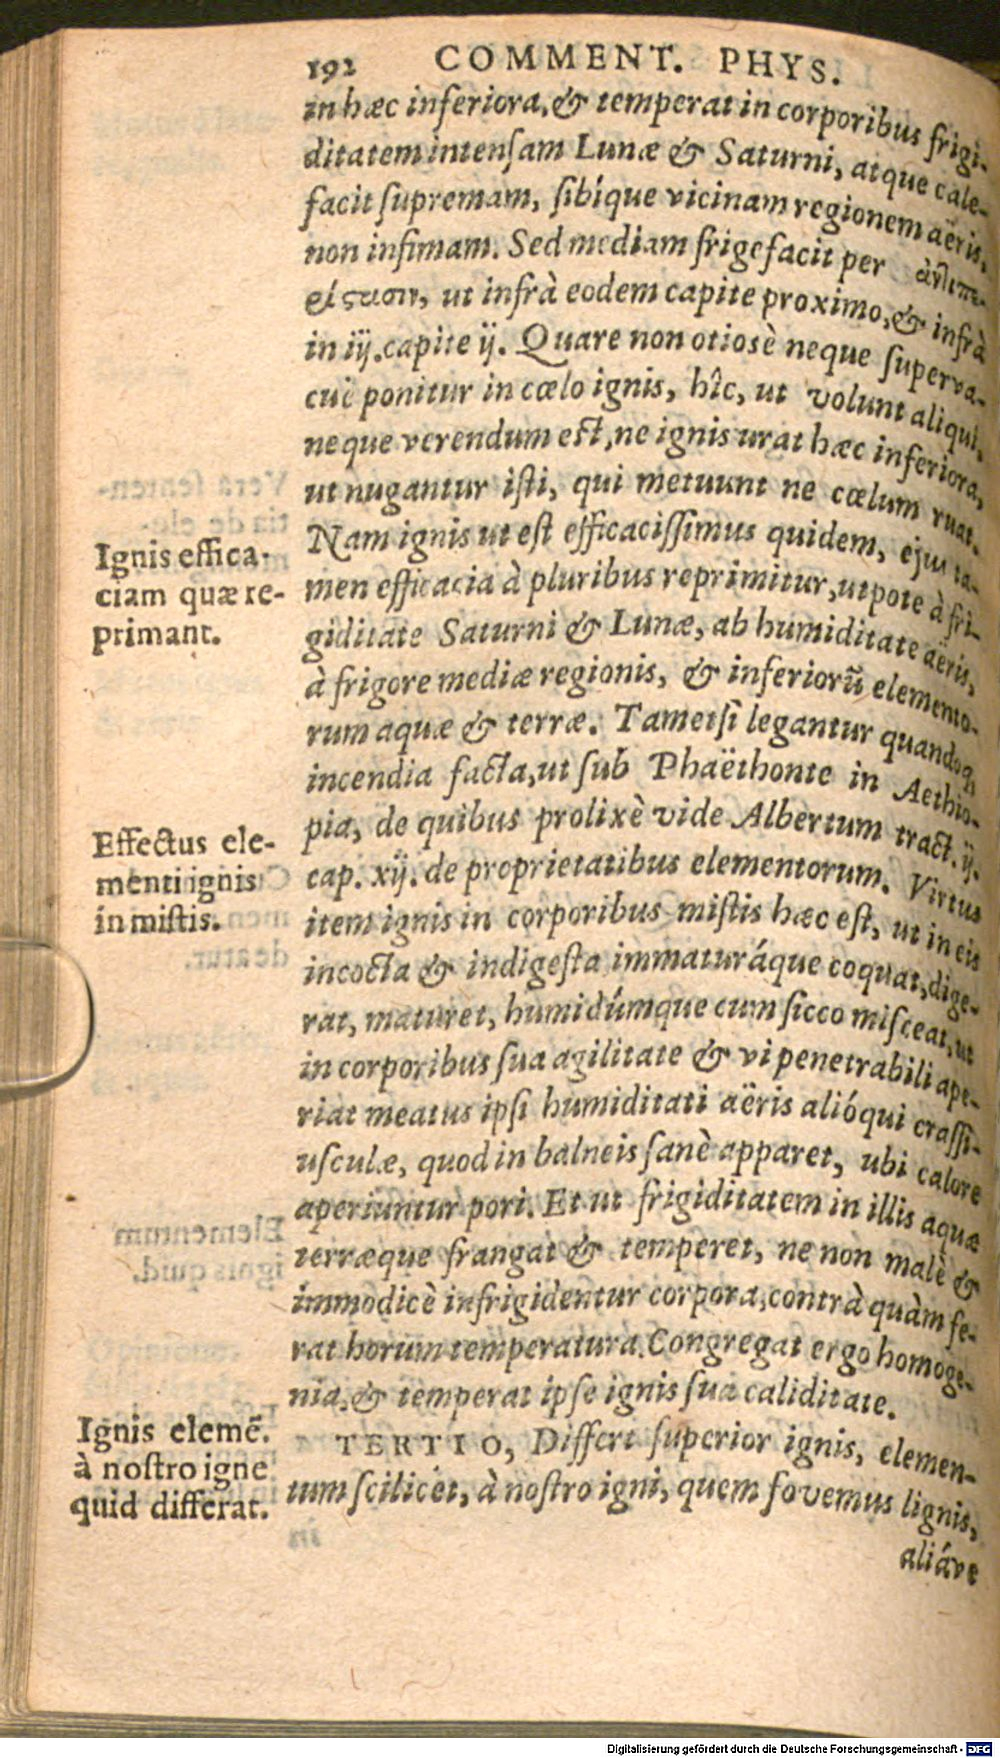 192 COMMENT. PHYS.
in hæc inferiora, & temperat in corporibus frigi-
ditatem intensam Lunæ & Saturni, atque cale-
facit supremam, sibíque vicinam regionem aëris,
non infimam. Sed mediam frigefacit per ἀντιπε-
είςασιν, ut infrà eodem capite proximo, & infrà
in iij. capite ij. Quare non otiosè neque superva-
cuè ponitur in cœlo ignis, hîc, ut volunt aliqui,
neque verendum est, ne ignis urat hæc inferiora,
ut nugantur isti, qui metuunt ne cœlum ruat.
Nam ignis ut est efficacissimus quidem, ejus ta-
men efficacia à pluribus reprimitur, utpote à fri-
giditate Saturni & Lunæ, ab humiditate aëris,
à frigore mediæ regionis, & inferiorũ elemento-
rum aquæ & terræ. Tametsi legantur quandoq;
incendia facta, ut sub Phaëthonte in Aethio-
pia, de quibus prolixè vide Albertum tract. ij.
cap. xij. de proprietatibus elementorum. Virtus
item ignis in corporibus mistis hæc est, ut in eis
incocta & indigesta immaturáque coquat, dige-
rat, maturet, humidúmque cum sicco misceat, ut
in corporibus sua agilitate & vi penetrabili ape-
riat meatus ipsi humiditati aëris alióqui crassi-
usculæ, quod in balneis sanè apparet, ubi calore
aperiuntur pori. Et ut frigiditatem in illis aquæ
terræque frangat & temperet, ne non malè &
immodicè infrigidentur corpora, contrà quàm fe-
rat horum temperatura. Congregat ergo homoge-
nia, & temperat ipse ignis sua caliditate.
TERTIO, Differt superior ignis, elemen-
tum scilicet, à nostro igni, quem fovemus lignis,
aliáve
Ignis effica-
ciam quæ re-
primant.
Effectus ele-
menti ignis
in mistis.
Ignis elemẽ.
à nostro igne
quid differat.
Digitalisierung gefördert durch die Deutsche Forschungsgemeinschaft - DFG